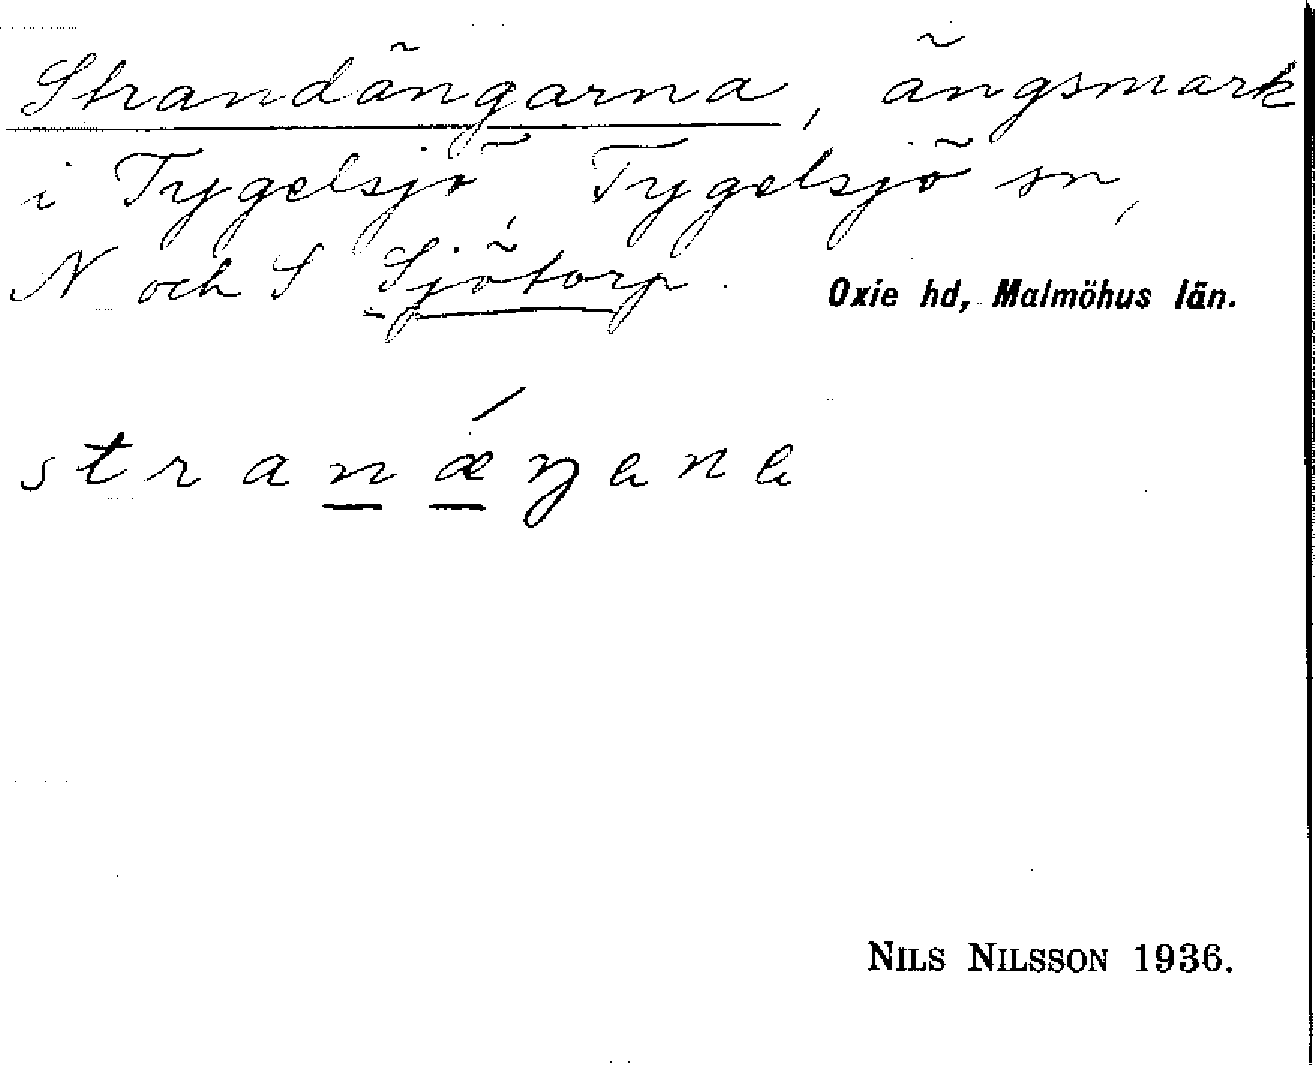 Strandängarna, ängsmark
i Tygelsjö, Tygelsjö sn,
N och S Sjötorp.
Oxie hd, Malmöhus län.
stranǽŋɐnɐ
NILS NILSSON 1936.